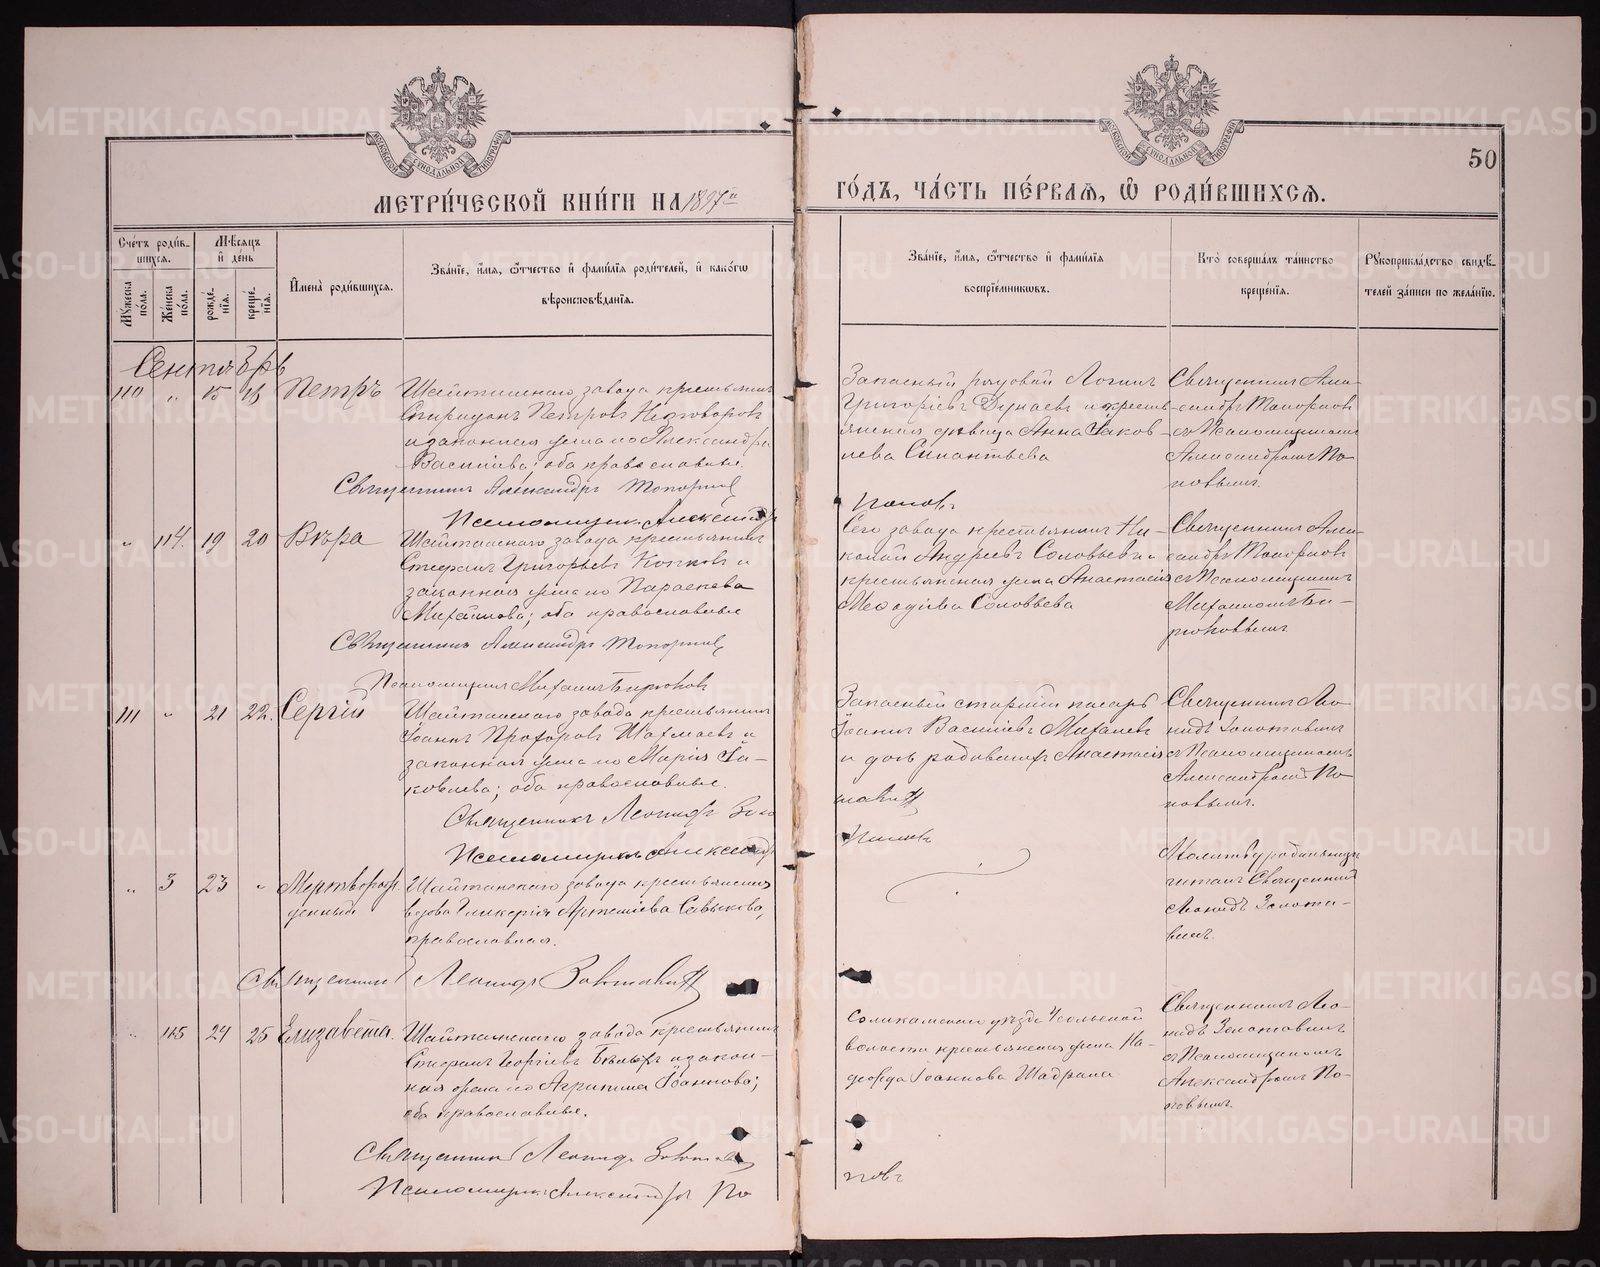 50
МЕТРИ́ЧЕСКОЙ КНИ́ГИ НА 1897й ГО́ДЪ, ЧА́СТЬ ПЕ́РВАЯ, Ѿ РОДИ́ВШИХСЯ.
Сче́тъ роди́в-
шихся.
Мѣ́сяцъ
и҆ де́нь
Мꙋ́жеска
по́ла.
Же́нска
по́ла.
рожде́-
нїѧ.
креще́-
нїѧ.
И҆мена̀ роди́вшихся.
Зва́нїе, и҆́мя, ѻ҆́тчество и҆ фами́лїя роди́телей, и҆ како́гѡ
вѣроисповѣ́данїя.
Зва́нїе, и҆́мя, ѻ҆́тчество и҆ фами́лїя
воспрїе́мниковъ.
Кто̀ соверша́лъ та́инство
креще́нїя.
Рꙋкоприкла́дство свидѣ́-
телей за́писи по жела́нїю.
Сентябрь
110 „ 15 18 Петръ
Шайтанскаго завода крестьянинъ
Спиридонъ Петровъ
и законная жена его Александра
Васильева; оба православные.
Священникъ Александръ Топорковъ
Псаломщикъ Александръ Поповъ
Запасный рядовой Логинъ
Григорьевъ Дунаевъ и кресть-
янская девица Анна Іаков-
лева Силантьева
Священникъ Алек-
сандръ Топорковъ
съ Псаломщикомъ
Александромъ По-
повымъ.
„ 114. 19 20 Вѣра
Шайтанскаго завода крестьянинъ
Стефанъ Григорьевъ Копковъ и
законная жена его Параскева
Михайлова; оба православные
Священникъ Александръ Топорковъ
Псаломщикъ Михаилъ Бирюковъ
Сего завода крестьянинъ Ни-
колай Андреевъ Соловьевъ и
крестьянская жена Анастасія
Меѳодіева Соловьева
Священникъ Алек-
сандръ Топорковъ
съ Псаломщикомъ
Михаиломъ Би-
рюковымъ
111 „ 21 22. Сергій
Шайтанскаго завода крестьянинъ
Іоаннъ Прохоровъ Шахмаевъ и
законная жена его Марія Іа-
ковлева; оба православные.
Священникъ Леонидъ Золотавинъ
Псаломщикъ Александръ Поповъ
Запасный старшій писарь
Іоаннъ Васильевъ Михалевъ
и дочь рядоваго Анастасія
Священникъ Лео-
нидъ Золотавинъ
съ Псаломщикомъ
Александромъ По-
повымъ.
„ 3 23 „ Мертворож-
денный
Шайтанскаго завода крестьянская
вдова Гликерія Артеміева Савыкова,
православная.
Священникъ Леонидъ Золотавинъ
Молитву родильницѣ
читалъ Священникъ
Леонидъ Золота-
винъ.
„ 115 24 25 Елизавета.
Шайтанскаго завода крестьянинъ
Стефанъ Георгіевъ и закон-
ная жена его Агрипина Іоаннова;
оба православные.
Священникъ Леонидъ Золотавинъ
Псаломщикъ Александръ Поповъ
Соликамскаго уѣзда Усольской
волости крестьянская жена На-
дежда Іоаннова Шадрина
Священникъ Лео-
нидъ Золотавинъ
съ Псаломщикомъ
Александромъ По-
повымъ.
METRIKI.GASO-URAL.RU